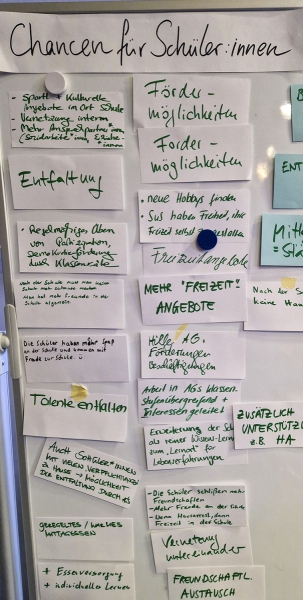 Chancen für Schüler:innen
- Sportl. + Kulturelle
Angebote im Ort Schule
- Vernetzung intern
- Mehr Ansprechpartner*innen
Entfaltung
- Regelmäßiges Üben
von Partizipation,
Demokratieförderung
durch Klassenräte
Die Schüler haben mehr Spaß
an der Schule und kommen mit
Freude zur Schule. ü
Talente entfalten
Auch Schüler*innen
mit vielen Verpflichtungen
zu Hause → Möglichkeit
der Entfaltung durch AGs
Geregeltes / warmes
Mittagessen
+ Essensversorgung
+ individuelles Lernen
Förder-
möglichkeiten
Forder-
möglichkeiten
- neue Hobbys finden
- SuS haben Freiheit, ihre
Freizeit selbst
Freizeitangebote
MEHR "FREIZEIT"
ANGEBOTE
Hilfe, AG,
Förderungen
Beschäftigungen
Arbeit in AGs klassen-
stufenübergreifend +
Interessen geleitet
Erweiterung der Schule
als reiner Wissen-Lernort
zum "Lernort" für
Lebenserfahrungen
- Die Schüler schließen mehr
Freundschaften
- Mehr Freude an der Schule
- Kein Hausaufg., dann
Freizeit in der Schule
Vernetzung
untereinander
FREUNDSCHAFTL.
AUSTAUSCH
ENT
Nach der S
keine Hau
ZUSÄTZLICH
UNTERSTÜTZ
z.B. HA